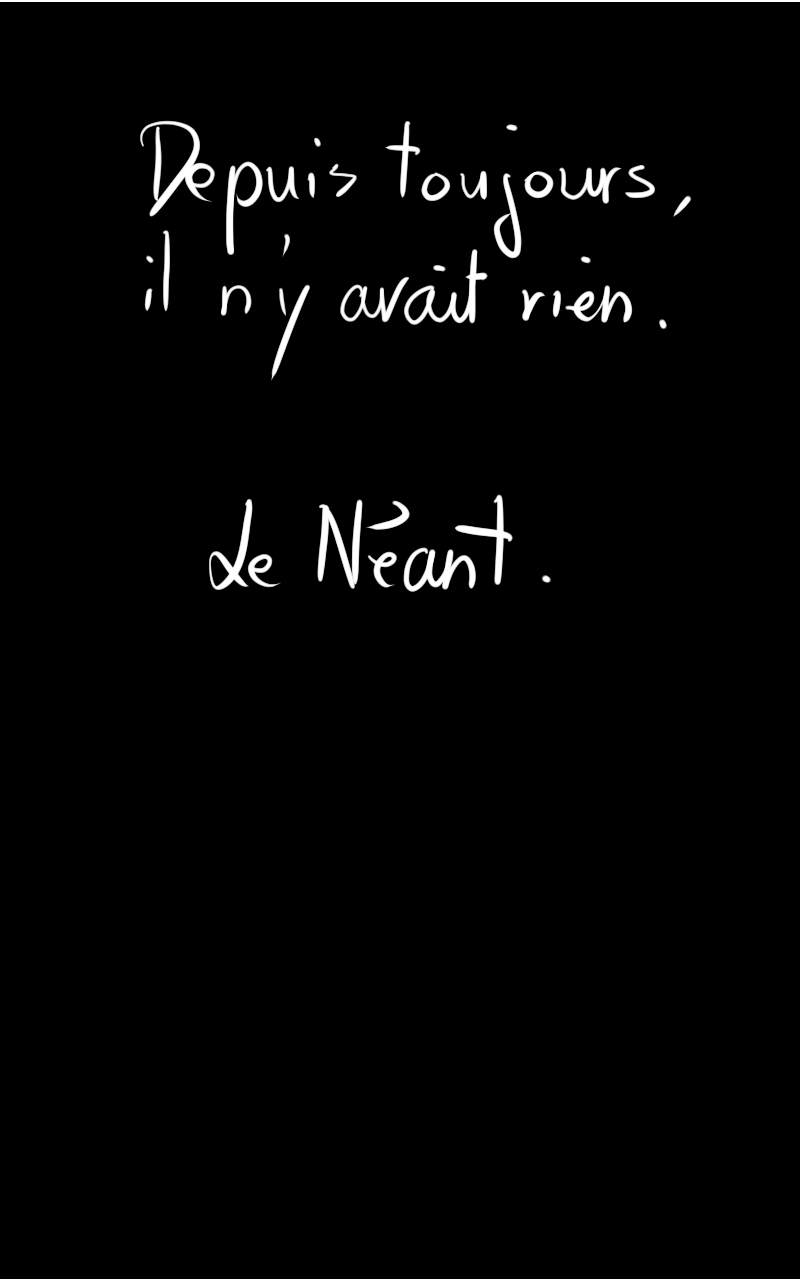 Depuis toujours,
il n'y avait rien.
Le Néant.